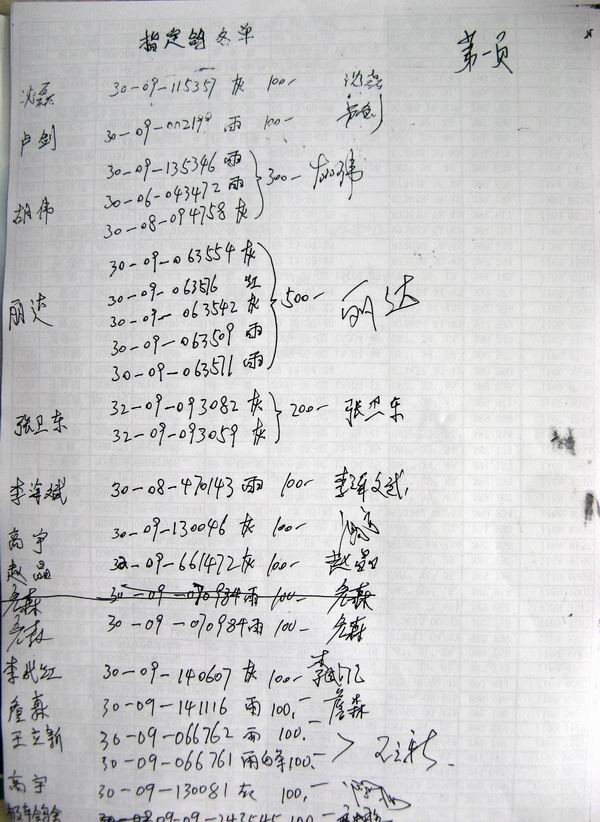 指定鸽名单
第一页
沈磊 30-09-115357 灰 100-
卢剑 30-09-002199 雨 100- 卢剑
30-09-135346 雨
胡伟 30-06-043472 雨 300- 胡伟
30-08-094758 灰
30-09-063554 灰
30-09-063576 红
丽达 30-09-063542 灰 500- 丽达
30-09-063509 雨
30-09-063571 雨
张卫东 32-09-093082 灰 200- 张卫东
32-09-093059 灰
30-08-470143 雨 100-
高宇 30-09-130046 灰 100-
赵晶 30-09-661472 灰 100- 赵晶
30-09-070984 雨 100-
30-09-070984 雨 100-
30-09-140607 灰 100-
詹森 30-09-141116 雨 100.- 詹森
王立新 30-09-066762 雨 100.- 王立新
30-09-066761 雨白条 100.-
高宇 30-09-130081 灰 100.-